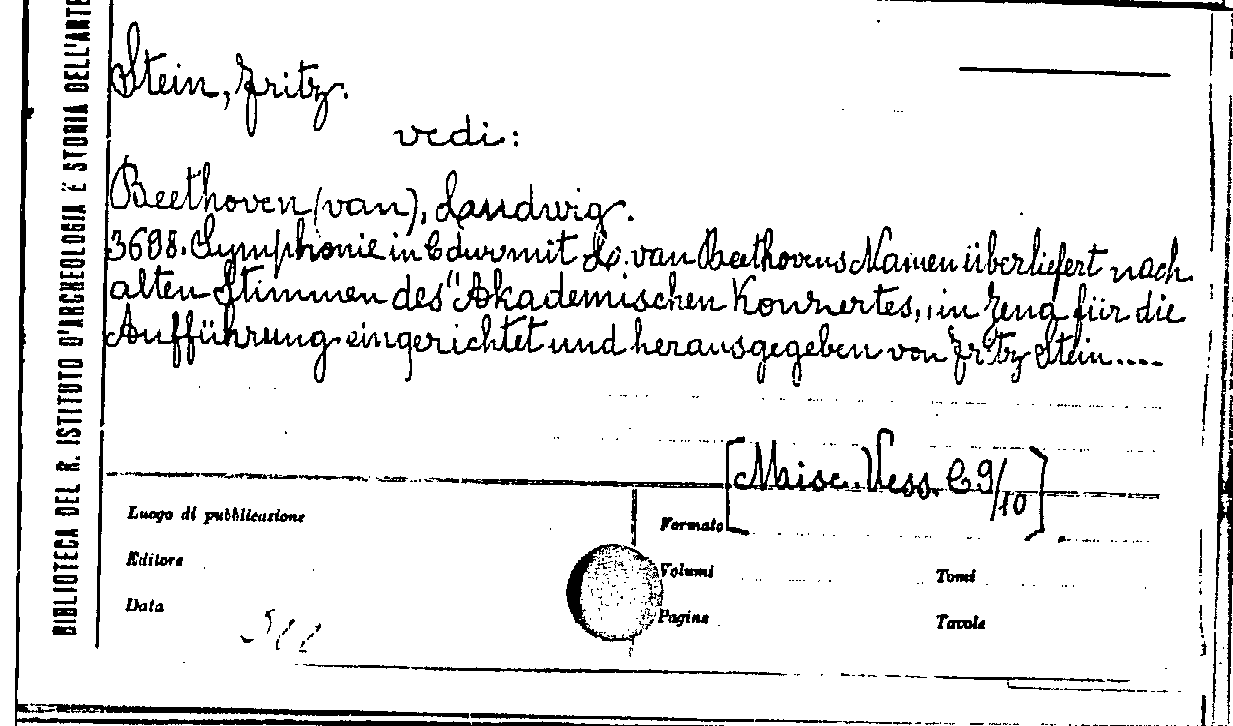 BIBLIOTECA DEL R. ISTITUTO D'ARCHEOLOGIA E STORIA DELL'ARTE
Stein, Fritz.
vedi:
Beethoven (van), Landwig.
3698. Symphonie in C dur mit L. van Beethovens Namen überliefert nach
alten Stimmen des "Akademischen Konzertes,, in Jena für die
Aufführung eingerichtet und herausgegeben von Fritz Stein....
[Misc. Vess. C 9/10]
Luogo di pubblicazione
Formato
Editore
Volumi
Tomi
Data
Pagine
Tavole